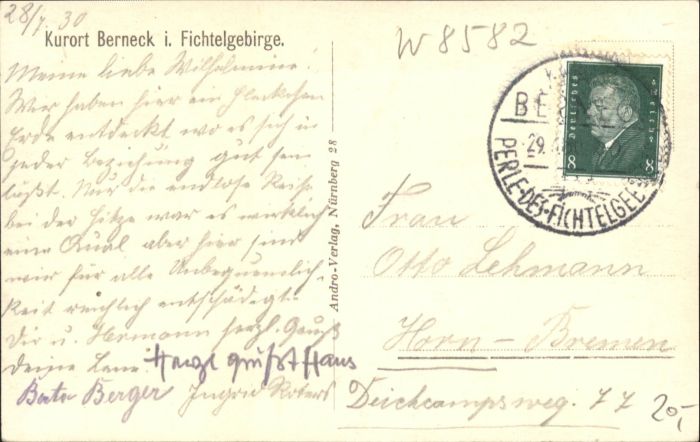 28/7. 30
Kurort Berneck i. Fichtelgebirge.
Meine liebe Wilhelmine!
Wir haben hier ein Fleckchen
Erde entdeckt wo es sich in
jeder Beziehung gut sein
läßt. Nur die endlose Reise
bei der Hitze war es wirklich
eine Qual aber hier sind
wir für alle Unbequemlich-
keit reichlich entschädigt.
Dir u. Hermann herzl. Gruß
deine
Herzl grüßt Hans
Berta Berger
Ingrid Roters
Andro-Verlag, Nürnberg 28
W 8582
Deutsches Reich
8 8
BE
29.
PERLE-DES-FICHTELGEB
Frau
Otto Lehmann
Horn-Bremen
Deichcampsweg. 77
20,-